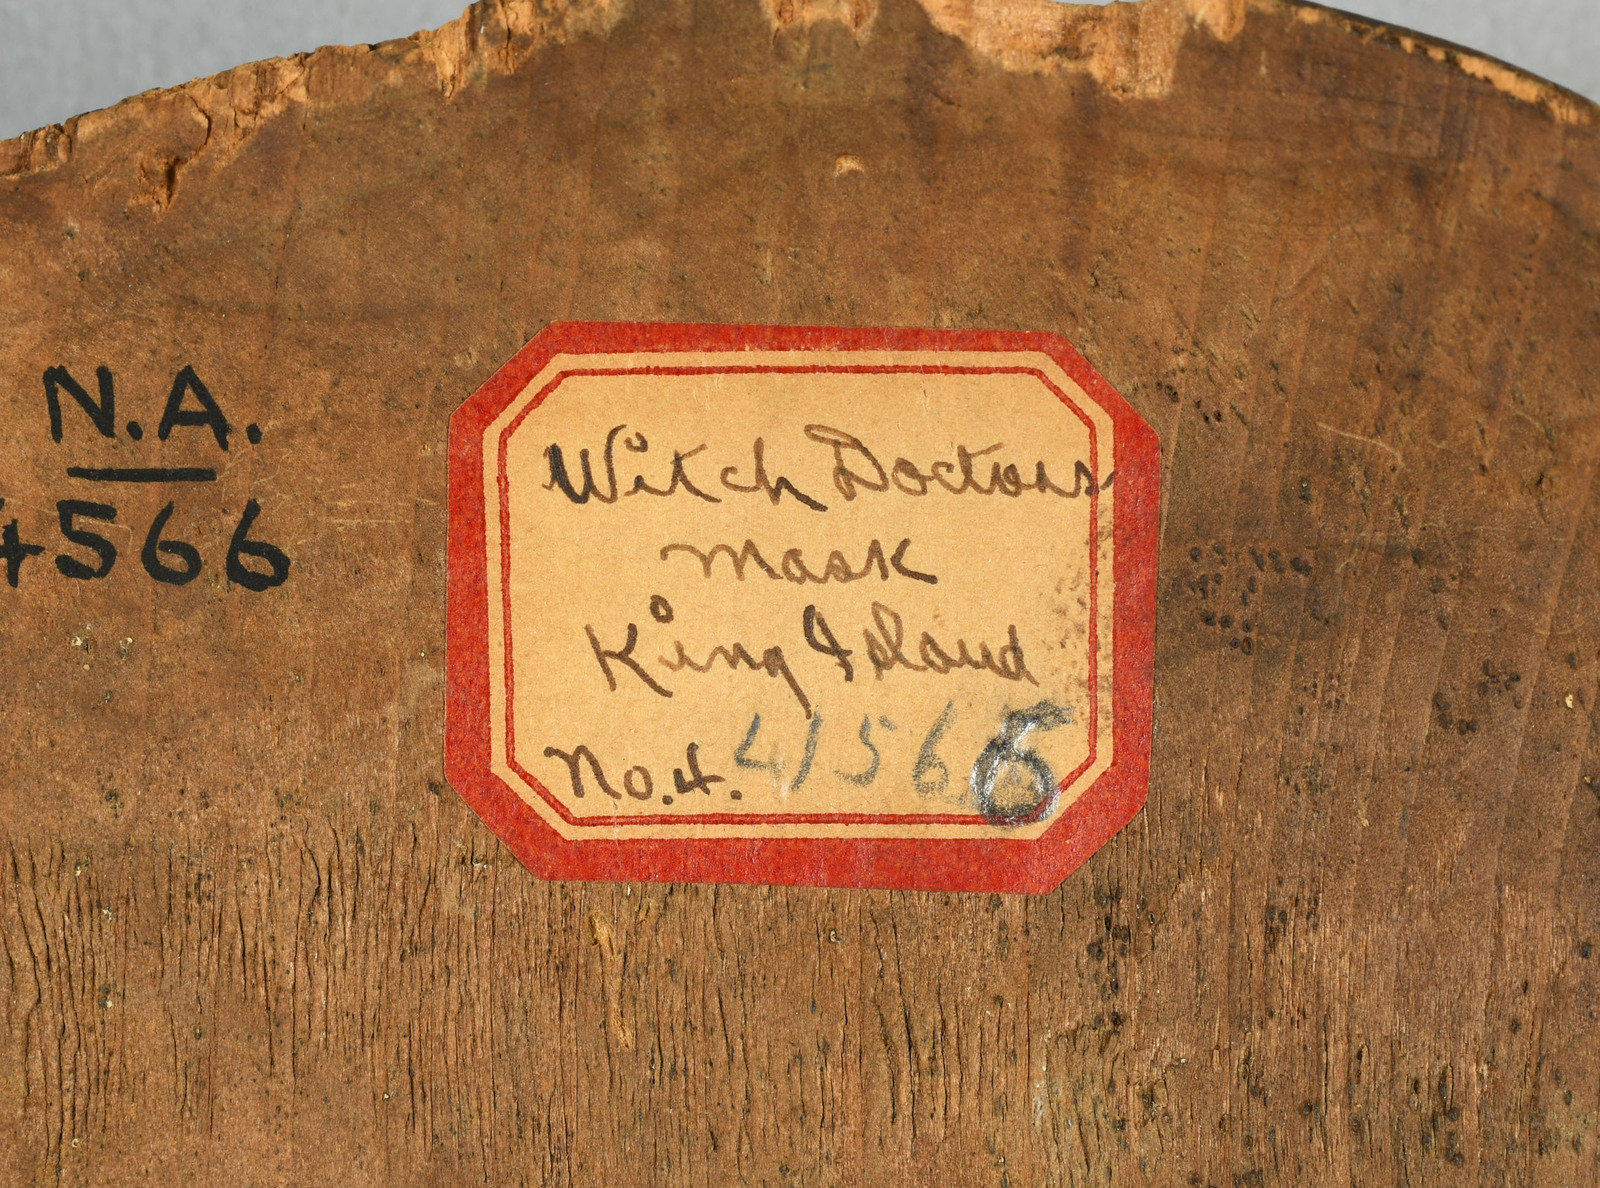 N.A.
4566
Witch Doctors
Mask
King Island
No. 4. 4566